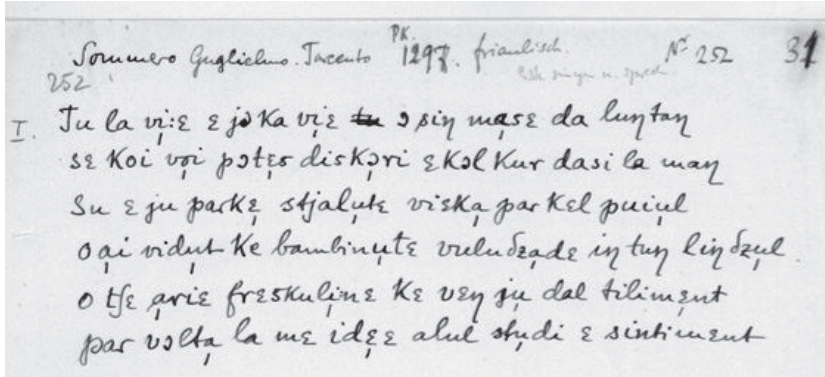 PK.
Sommero Guglielmo. Tarcento 1297. friaulisch. Nr 252 31
252
I. Tu la vi̩:ɛ ɛ jɔ ka vi̩ɛ ɔ siŋ ma̩sɛ da luŋtaŋ
sɛ koi vo̩i pɔtɛ̩s diskɔ̩ri ɛkɔl kur dasi la maŋ
Su ɛ ju parkɛ̩ stjalu̩tɛ viɛka̩ par kɛl puiu̩l
o a̩i vidu̩t ke bambinu̩tɛ vuluʤa̩dɛ iŋ tuŋ liŋʤu̩l
o tʃɛ a̩riɛ frɛskuli̩nɛ kɛ vɛŋ ju̩ dal tilimɛ̩nt
par vɔlta̩ la mɛ idɛ̩ɛ alul stu̩di ɛ sintimɛnt